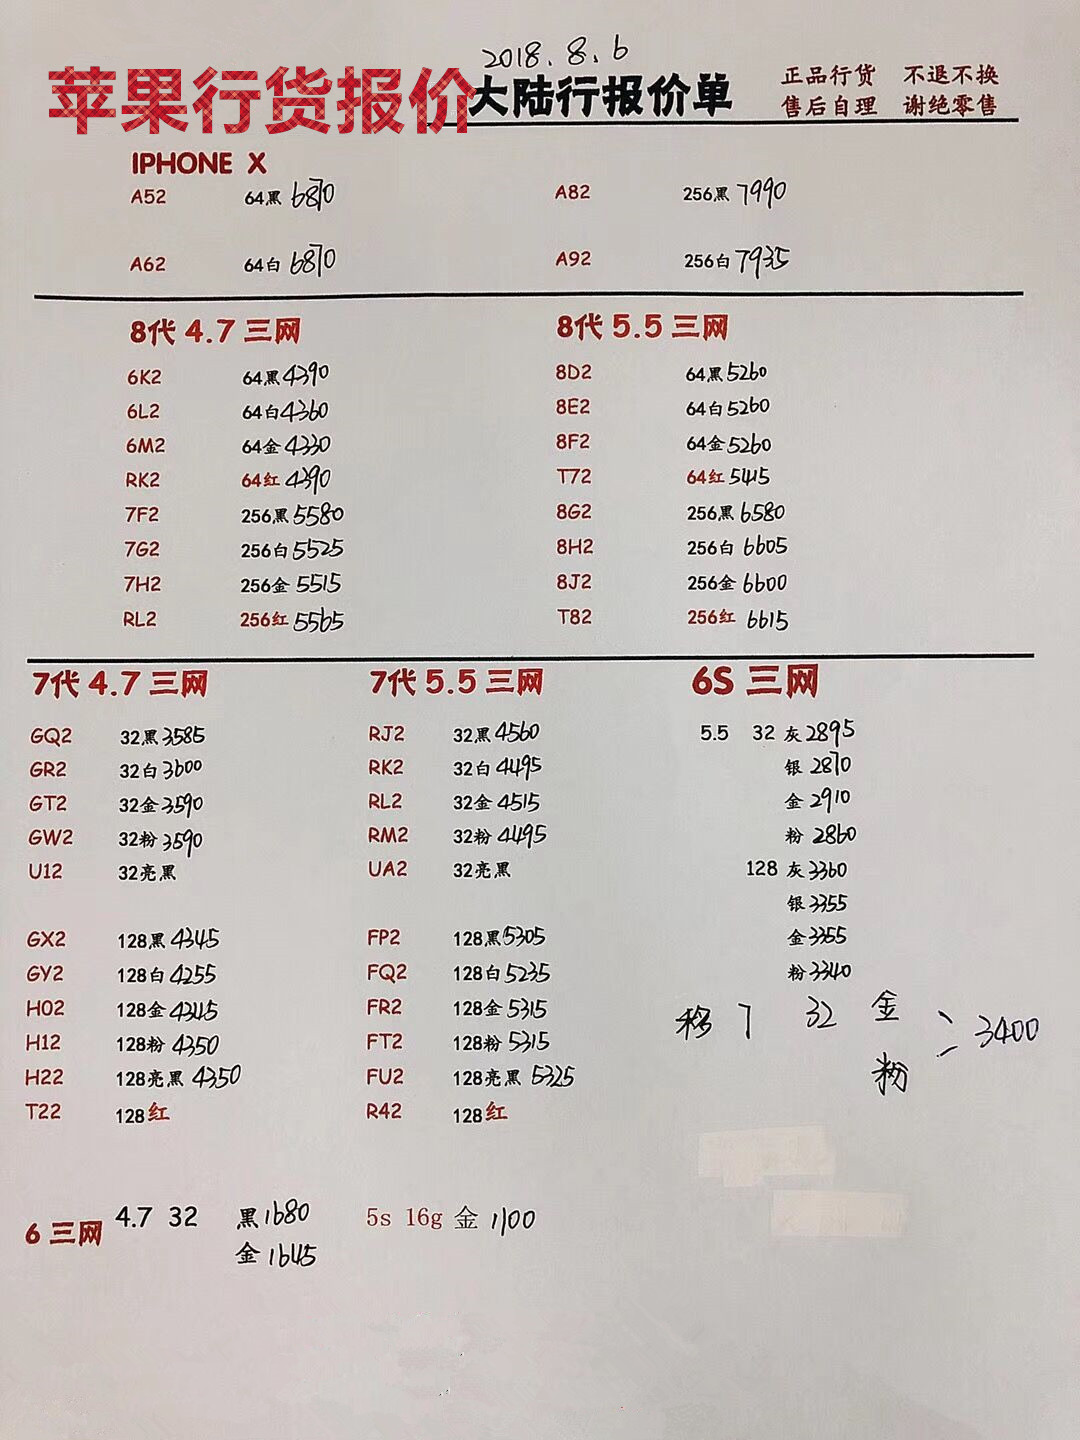 2018.8.6
苹果行货报价 大陆行报价单 正品行货 不退不换
售后自理 谢绝零售
IPHONE X
A52 64黑 6870 A82 256黑 7990
A62 64白 6870 A92 256白 7935
8代 4.7 三网 8代 5.5 三网
6K2 64黑 4390 8D2 64黑 5260
6L2 64白 4360 8E2 64白 5260
6M2 64金 4330 8F2 64金 5260
RK2 64红 4390 T72 64红 5415
7F2 256黑 5580 8G2 256黑 6580
7G2 256白 5525 8H2 256白 6605
7H2 256金 5515 8J2 256金 6600
RL2 256红 5565 T82 256红 6615
7代 4.7 三网 7代 5.5 三网 6S 三网
GQ2 32黑 3585 RJ2 32黑 4560 5.5 32 灰 2895
GR2 32白 3600 RK2 32白 4495 银 2870
GT2 32金 3590 RL2 32金 4515 金 2910
GW2 32粉 3590 RM2 32粉 4495 粉 2860
U12 32亮黑 UA2 32亮黑 128 灰 3360
银 3355
GX2 128黑 4345 FP2 128黑 5305 金 3355
GY2 128白 4255 FQ2 128白 5235 粉 3340
H02 128金 4345 FR2 128金 5315 移7 32 金
H12 128粉 4350 FT2 128粉 5315 3400
H22 128亮黑 4350 FU2 128亮黑 5325 粉
T22 128红 R42 128红
6 三网 4.7 32 黑 1680 5s 16g 金 1100
金 1645